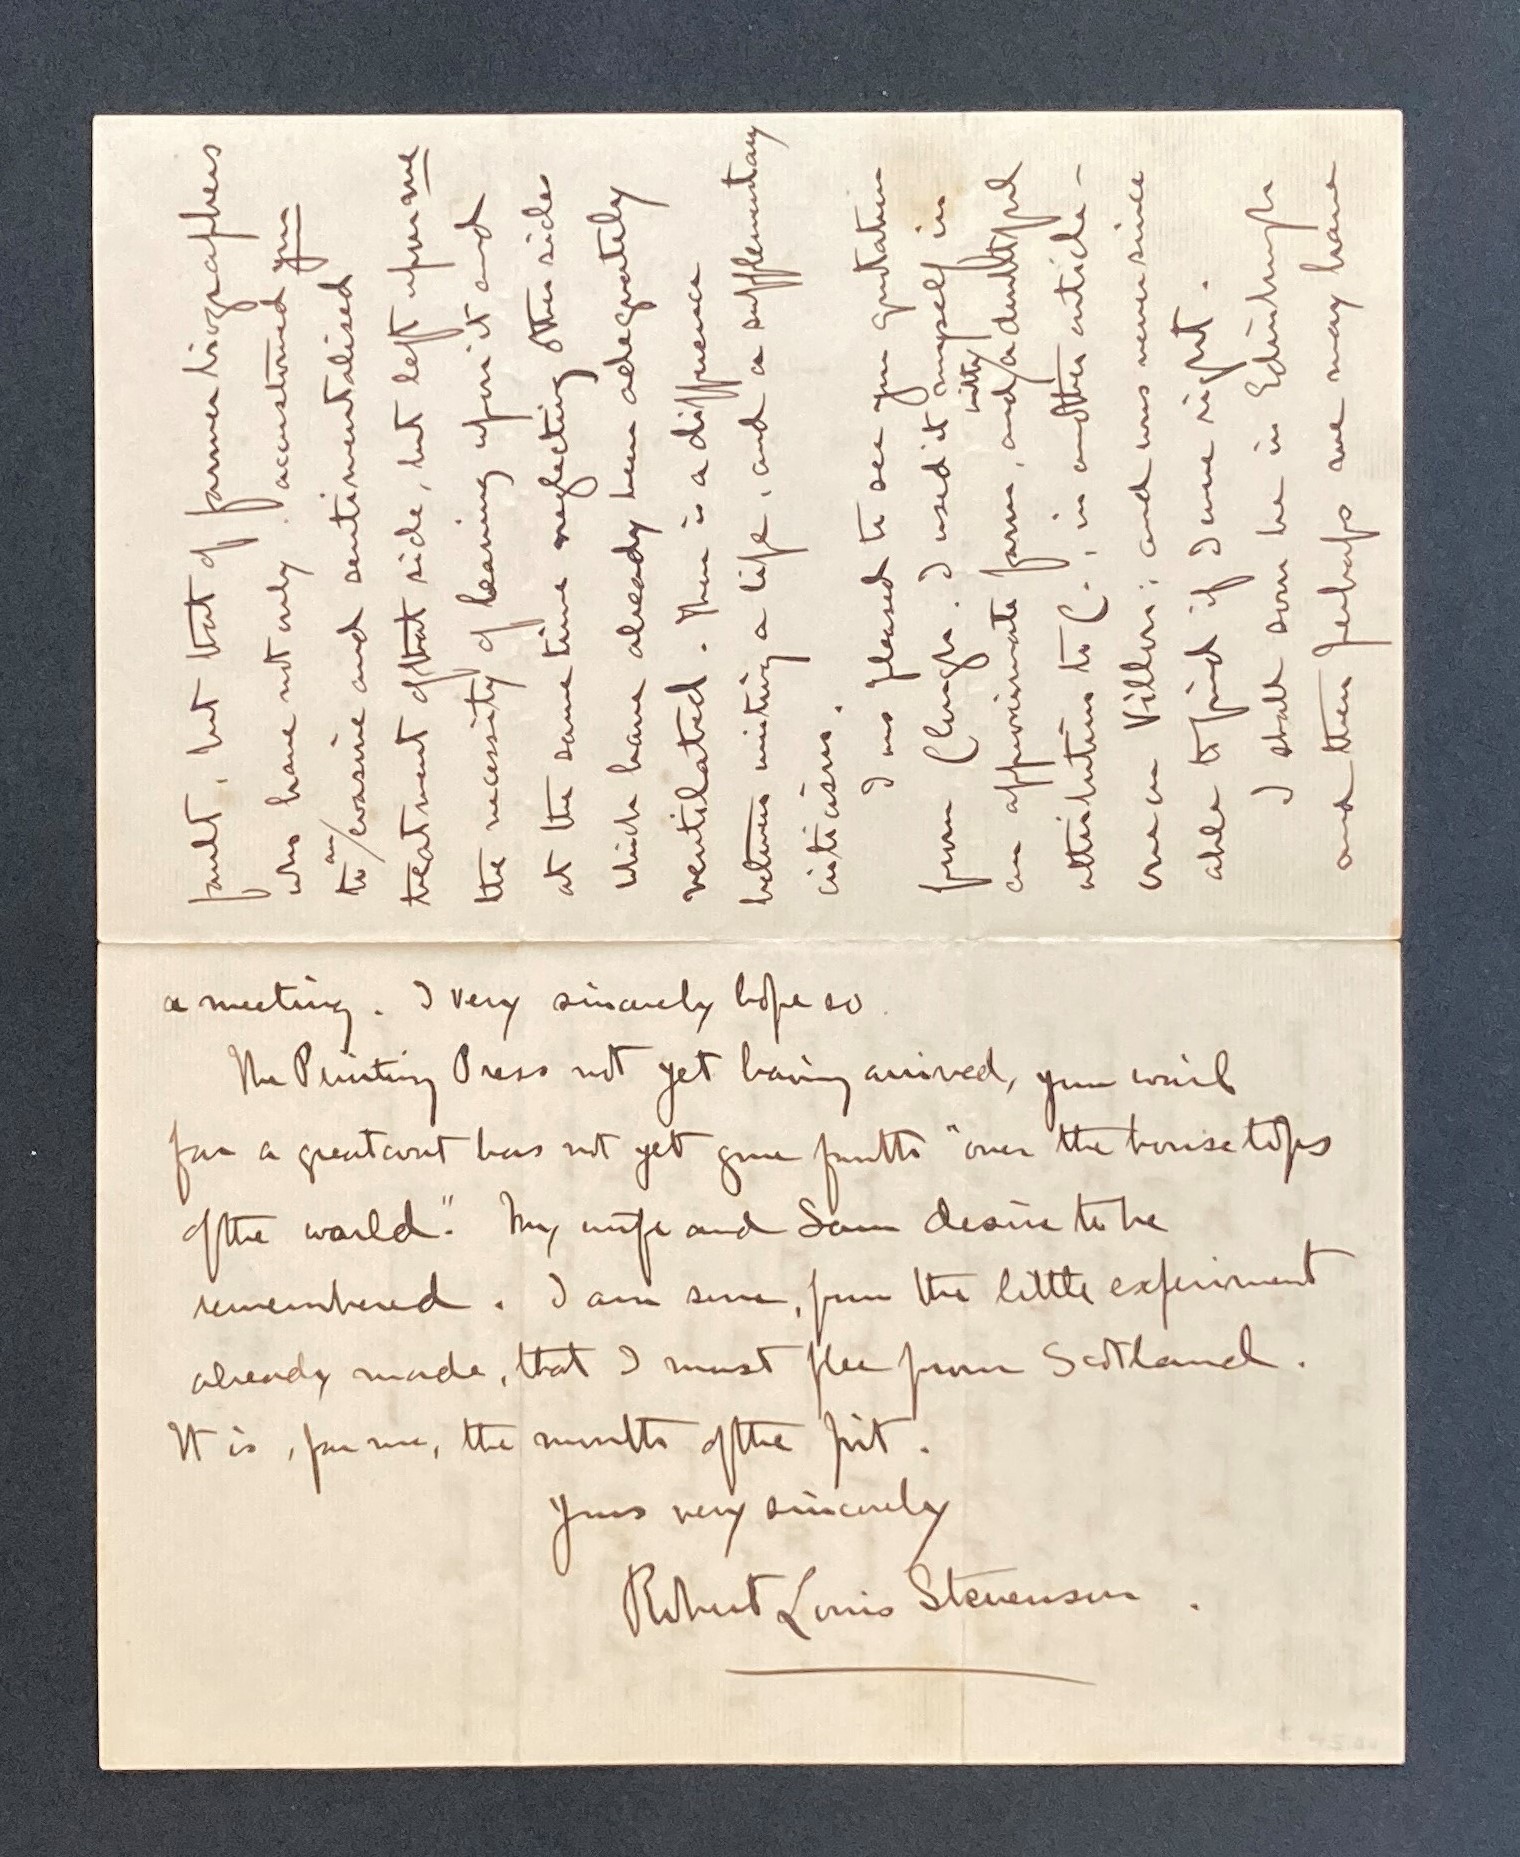 fault, but that of former biographers
who have not only accustomed you
to an evasive and sentimentalised
treatment of that side, but left upon me
the necessity of leaning upon it and
at the same time neglecting other sides
which have already been adequately
ventilated. There is a difference
between writing a life, and a supplementary
criticism.
I was pleased to see your quotation
from Clough. I used it myself in
an approximate form, and with a doubtful
attribution to C., in another article -
one on Villon; and was never since
able to find if I were right.
I shall soon be in Edinburgh
and then perhaps we may have
a meeting. I very sincerely hope so.
The Printing Press not yet having arrived, your wail
for a greatcoat has not yet gone forth "over the housetops
of the world". My wife and Sam desire to be
remembered. I am sure, from the little experiment
already made, that I must flee from Scotland.
It is, for me, the mouth of the pit.
Yours very sincerely
Robert Louis Stevenson.